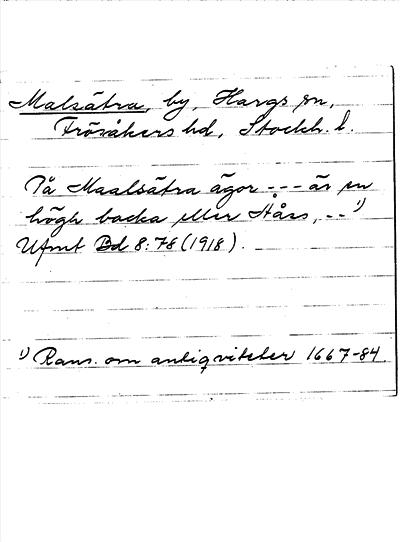 Malsätra, by, Hargs sn,
Frösåkers hd, Stockh. l.
På Maalsätra ägor --- är en
högh backa eller Åhrs, -- 1)
Ufmt Bd 8:78 (1918).
1) Rans. om antiqviteter 1667-84.